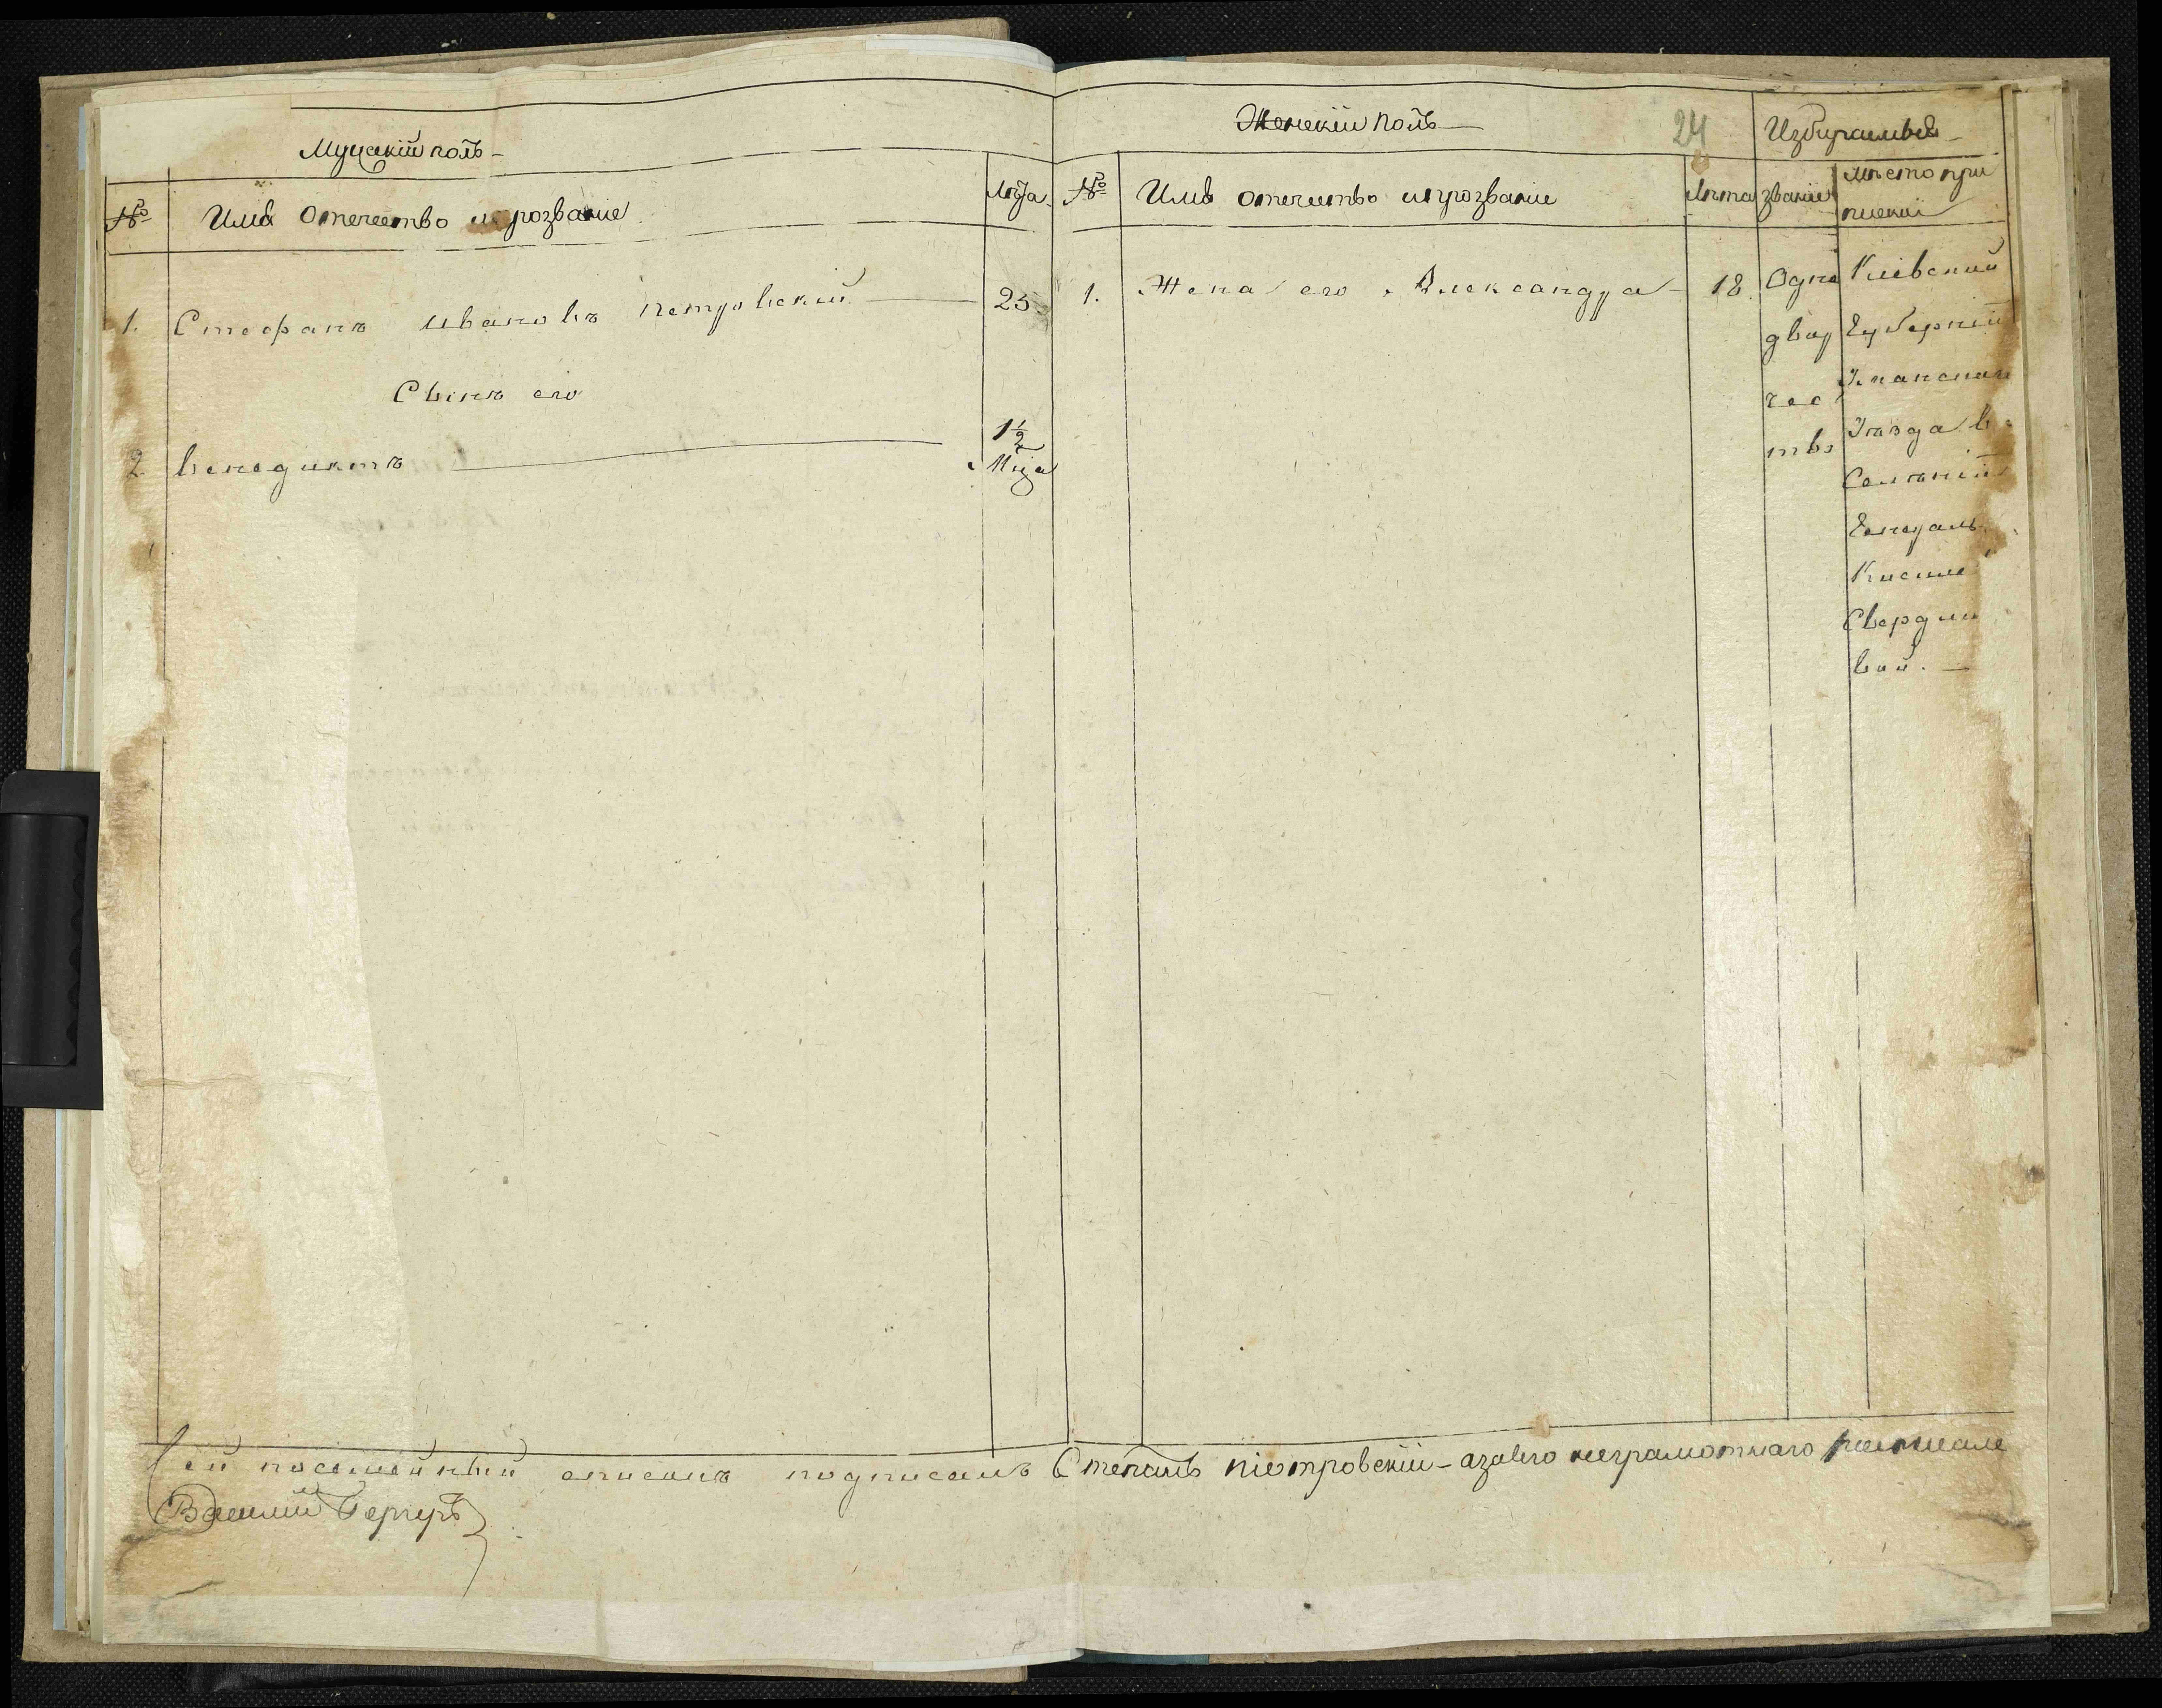 Мужскій полъ
№ Имя отечество и прозваніе Лѣта
1. Стефанъ Ивановъ Петровскій 25
Сынъ его
2 Венедиктъ 1½ Года
24
Женскій полъ Избираемые
№ Имя отечество и прозваніе Лѣта званіе Место при
писки
1. Жена его Александра 18
Одно
двор
чес
тво
Кіевской
Губерніи
Уѣзда в
Селеніи
Свердли
Сей посемейный списокъ подписалъ Степанъ Піотровскій а за его неграмотнаго росписалс
Василий